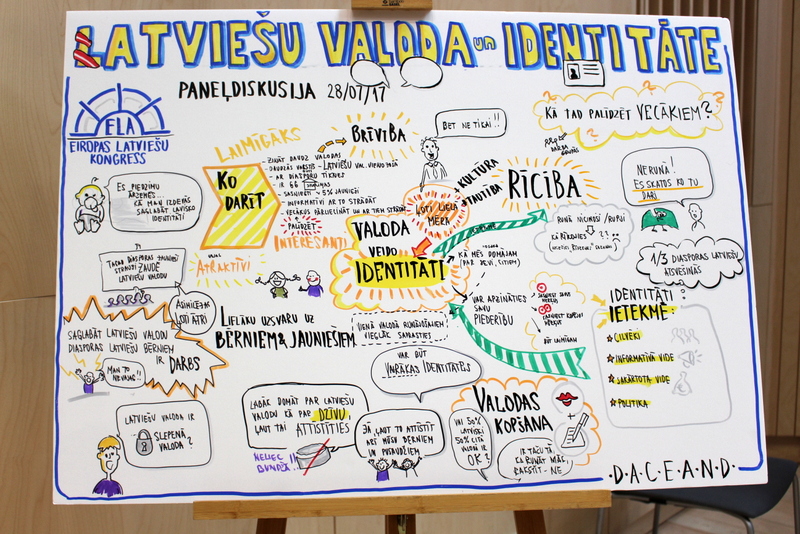 LATVIEŠU VALODA un IDENTITĀTE
PANEĻDISKUSIJA 28/07/17
ELA
EIROPAS LATVIEŠU
KONGRESS
LAIMĪGĀKS
BRĪVĪBA
BET NE TIKAI!!
KĀ TAD PALĪDZĒT VECĀKIEM?
ES PIEDZIMU
ĀRZEMĒS...
KĀ MAN IZDEVĀS
SAGLABĀT LATVISKO
IDENTITĀTI
KO
DARĪT
- ZINĀT DAUDZ VALODAS
- AR DIASPORU TIKLUS
- IR 66
- SASNIEDZ ~5% JAUNIEŠI
- INFORMATĪVI AR TO STRĀDĀT
- VECĀKUS PĀRLIECINĀT UN AR TIEM STRĀDĀT
PALĪDZĒT
INTERESANTI
ATRAKTĪVI
KULTŪRA
+ TAUTĪBA
ĻOTI LIELĀ
MĒRĀ
RĪCĪBA
NERUNĀ!
ES SKATOS KO TU
DARI
VALODA
VEIDO
IDENTITĀTI
KĀ MĒS DOMĀJAM
PAR SEVI, CITIEM
1/3 DIASPORAS LATVIEŠU
ATSVEŠINĀS
TAGAD DIASPORAS JAUNIEŠI
STRAUJI ZAUDĒ
LATVIEŠU VALODU
ASIMILĒJAS
ĻOTI ĀTRI
LIELĀKU UZSVARU UZ
BĒRNIEM & JAUNIEŠIEM
VIENĀ VALODĀ RUNĀJOŠAJIEM
VIEGLĀK SAPRASTIES
VAR APZINĀTIES
SAVU
PIEDERĪBU
BŪT LAIMĪGAM
IDENTITĀTI
IETEKMĒ:
CILVĒKI
INFORMATĪVĀ VIDE
SAKĀRTOTA VIDE
POLITIKA
SAGLABĀT LATVIEŠU VALODU
DIASPORAS LATVIEŠU BĒRNIEM
IR DARBS
MAN TO
NEVAJAG!!
VAR BŪT
VAIRĀKAS IDENTITĀTES
LATVIEŠU VALODA IR
SLEPENĀ
VALODA?
LABĀK DOMĀT PAR LATVIEŠU
VALODU KĀ PAR DZĪVU,
ĻAUT TAI ATTĪSTĪTIES
NELIEC
BUNDŽĀ!!
JĀ, ĻAUT TO ATTĪSTĪT
ARĪ MŪSU BĒRNIEM
UN PUSAUDŽIEM
VALODAS
KOPŠANA
VAI 50%
LATVISKI
50% CITĀ
VALODĀ IR
OK?
IR TAČU TĀ,
KA RUNĀT MĀK,
RAKSTĪT - NE
·D·A·C·E·A·N·D·